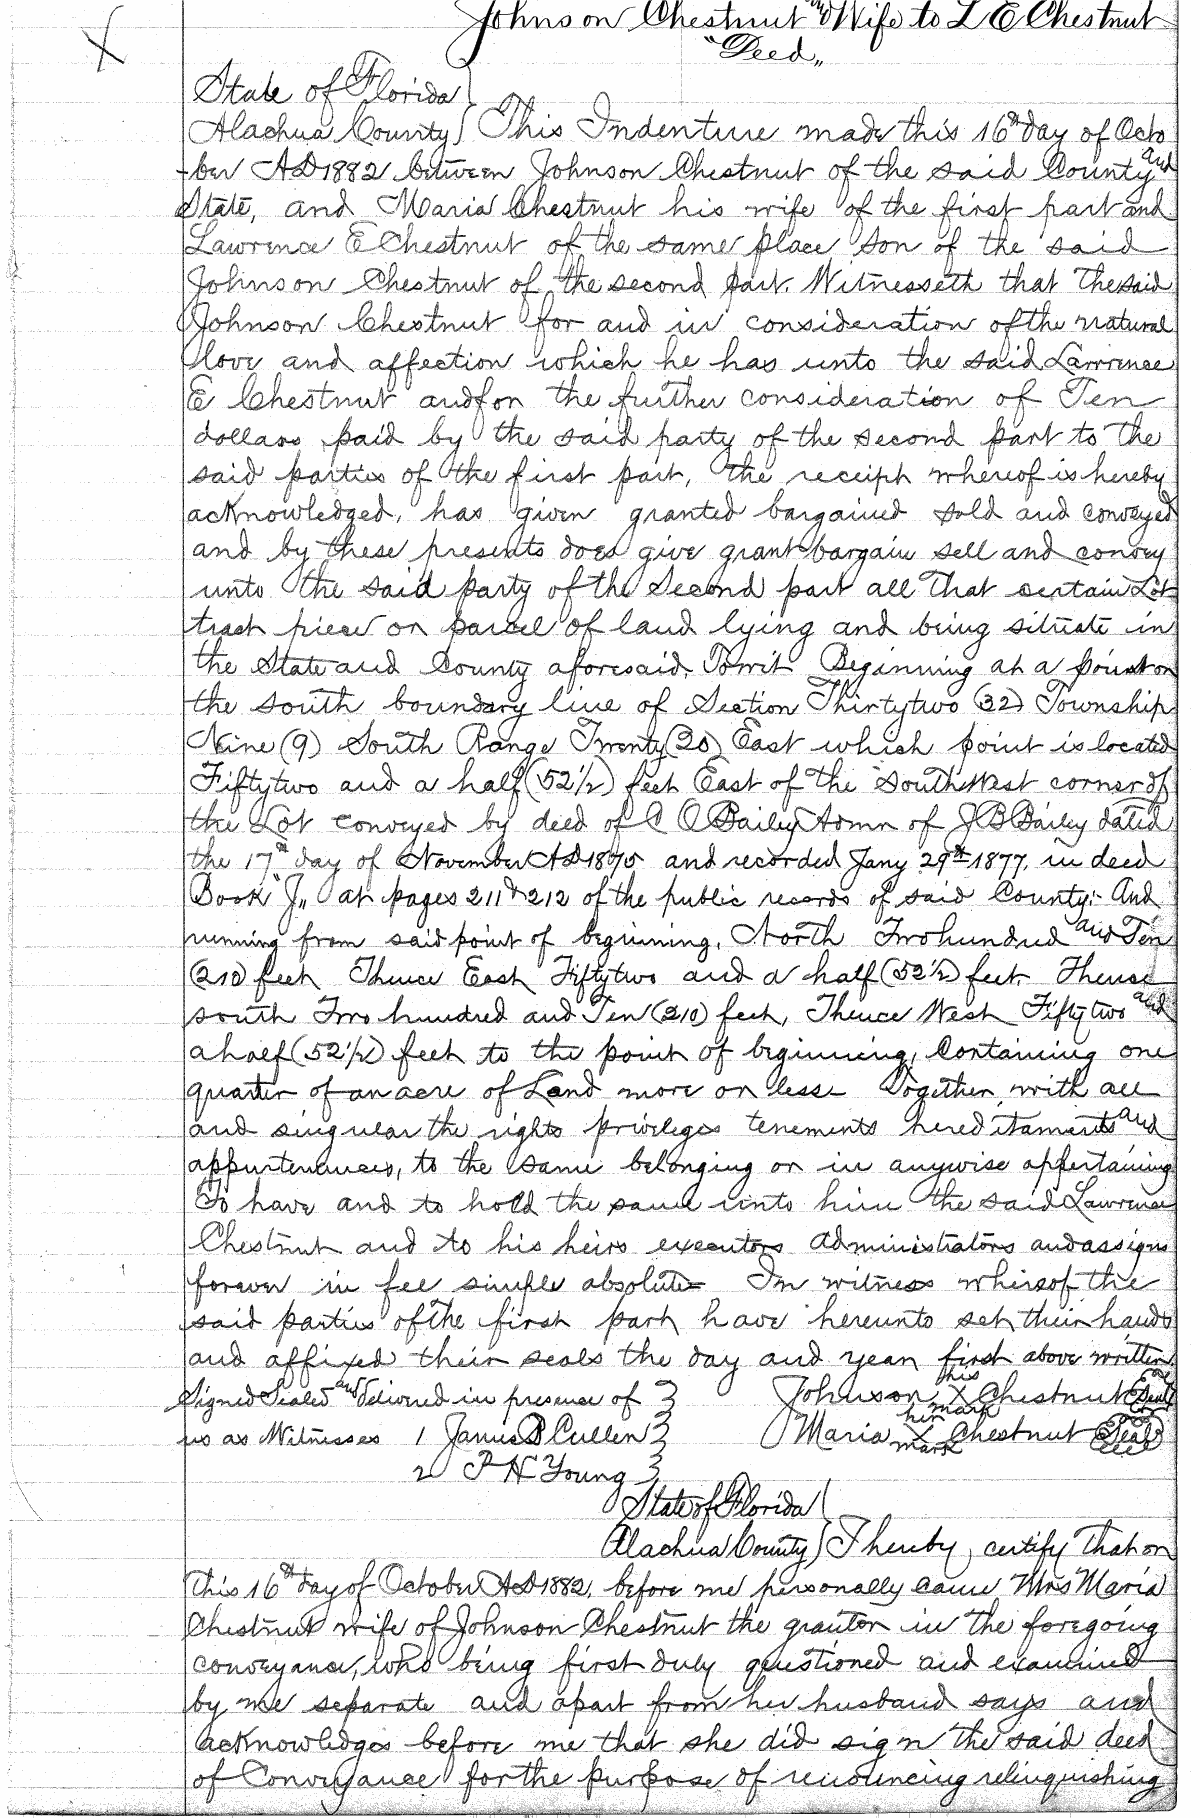 Johnson Chestnut and Wife to L E Chestnut
"Deed"
State of Florida
Alachua County } This Indenture made this 16th day of Octo
ber AD 1882 between Johnson Chestnut of the said County and
State, and Maria Chestnut his wife of the first part and
Lawrence E Chestnut of the same place son of the said
Johnson Chestnut of the second part. Witnesseth that the said
Johnson Chestnut for and in consideration of the natural
love and affection which he has unto the said Lawrence
E Chestnut and for the further consideration of Ten
dollars paid by the said party of the second part to the
said parties of the first part, the receipt whereof is hereby
acknowledged, has given granted bargained sold and conveyed
and by these presents does give grant bargain sell and convey
unto the said party of the Second part all that certain Lot
tract piece or parcel of land lying and being situate in
the State and County aforesaid. Towit Beginning at a point on
the south boundary line of Section Thirtytwo (32) Township
Nine (9) South Range Twenty (20) East which point is located
Fiftytwo and a half (52 1/2) feet East of the Southwest corner of
the Lot conveyed by deed of C O Bailey Admr of J B Bailey dated
the 17th day of November AD 1875 and recorded Jany 29th 1877. in deed
Book "J" at pages 211 & 212 of the public records of said County:- And
running from said point of beginning, North Two hundred and Ten
(210) feet Thence East Fiftytwo and a half (52 1/2) feet. Thence
south Two hundred and Ten (210) feet, Thence West Fiftytwo and
a half (52 1/2) feet to the point of beginning, Containing one
quarter of an acre of Land more or less Together with all
and singular the rights privileges tenements hereditaments and
appurtenances, to the same belonging or in anywise appertaining
To have and to hold the same unto him the said Lawrence
Chestnut and to his heirs executors administrators and assigns
forever in fee simple absolute In witness whereof the
said parties of the first part have hereunto set their hands
and affixed their seals the day and year first above written
Signed Sealed and Delivered in presence of } Johnson his X mark Chestnut Seal
us as Witnesses 1 James B Cullen } Maria her X mark Chestnut Seal
2 P H Young }
State of Florida
Alachua County } I hereby certify that on
this 16th day of October AD 1882. before me personally came Mrs Maria
Chestnut wife of Johnson Chestnut the grantor in the foregoing
conveyance, who being first duly questioned and examined
by me separate and apart from her husband says and
acknowledges before me that she did sign the said deed
of Conveyance for the purpose of renouncing relinquishing